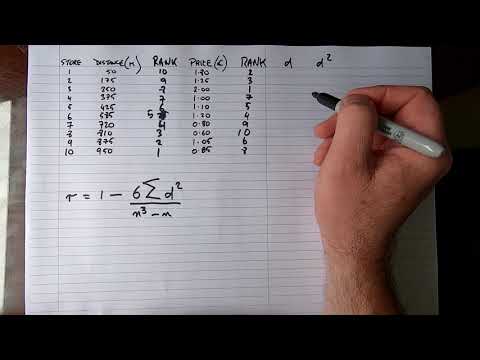 STORE DISTANCE(m) RANK PRICE(€) RANK d d²
1 50 10 1.80 2
2 175 9 1.25 3
3 250 8 2.00 1
4 375 7 1.00 7
5 425 6 1.10 5
6 585 5 1.20 4
7 720 4 0.80 9
8 810 3 0.60 10
9 875 2 1.05 6
10 950 1 0.85 8
r = 1 - 6∑d² / n³ - n